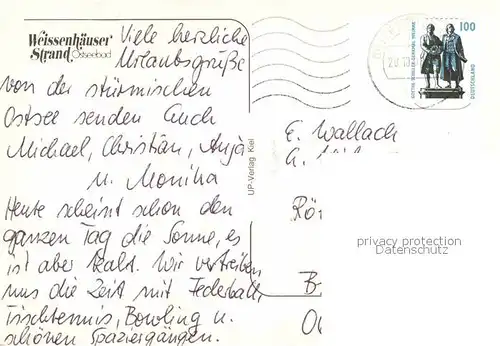 Weissenhäuser
Strand Ostseebad
Viele herzliche
Urlaubsgrüße
von der stürmischen
Ostsee senden Euch
Michael, Christian, Anja
u. Monika
Heute scheint schon den
ganzen Tag die Sonne, es
ist aber kalt. Wir vertreiben
uns die Zeit mit Federball,
Tischtennis, Bowling u.
schönen Spaziergängen.
UP-Verlag Kiel
100
GOETHE-SCHILLER-DENKMAL WEIMAR
DEUTSCHLAND
E. Wallach
G.
Rö
B
privacy protection
Datenschutz